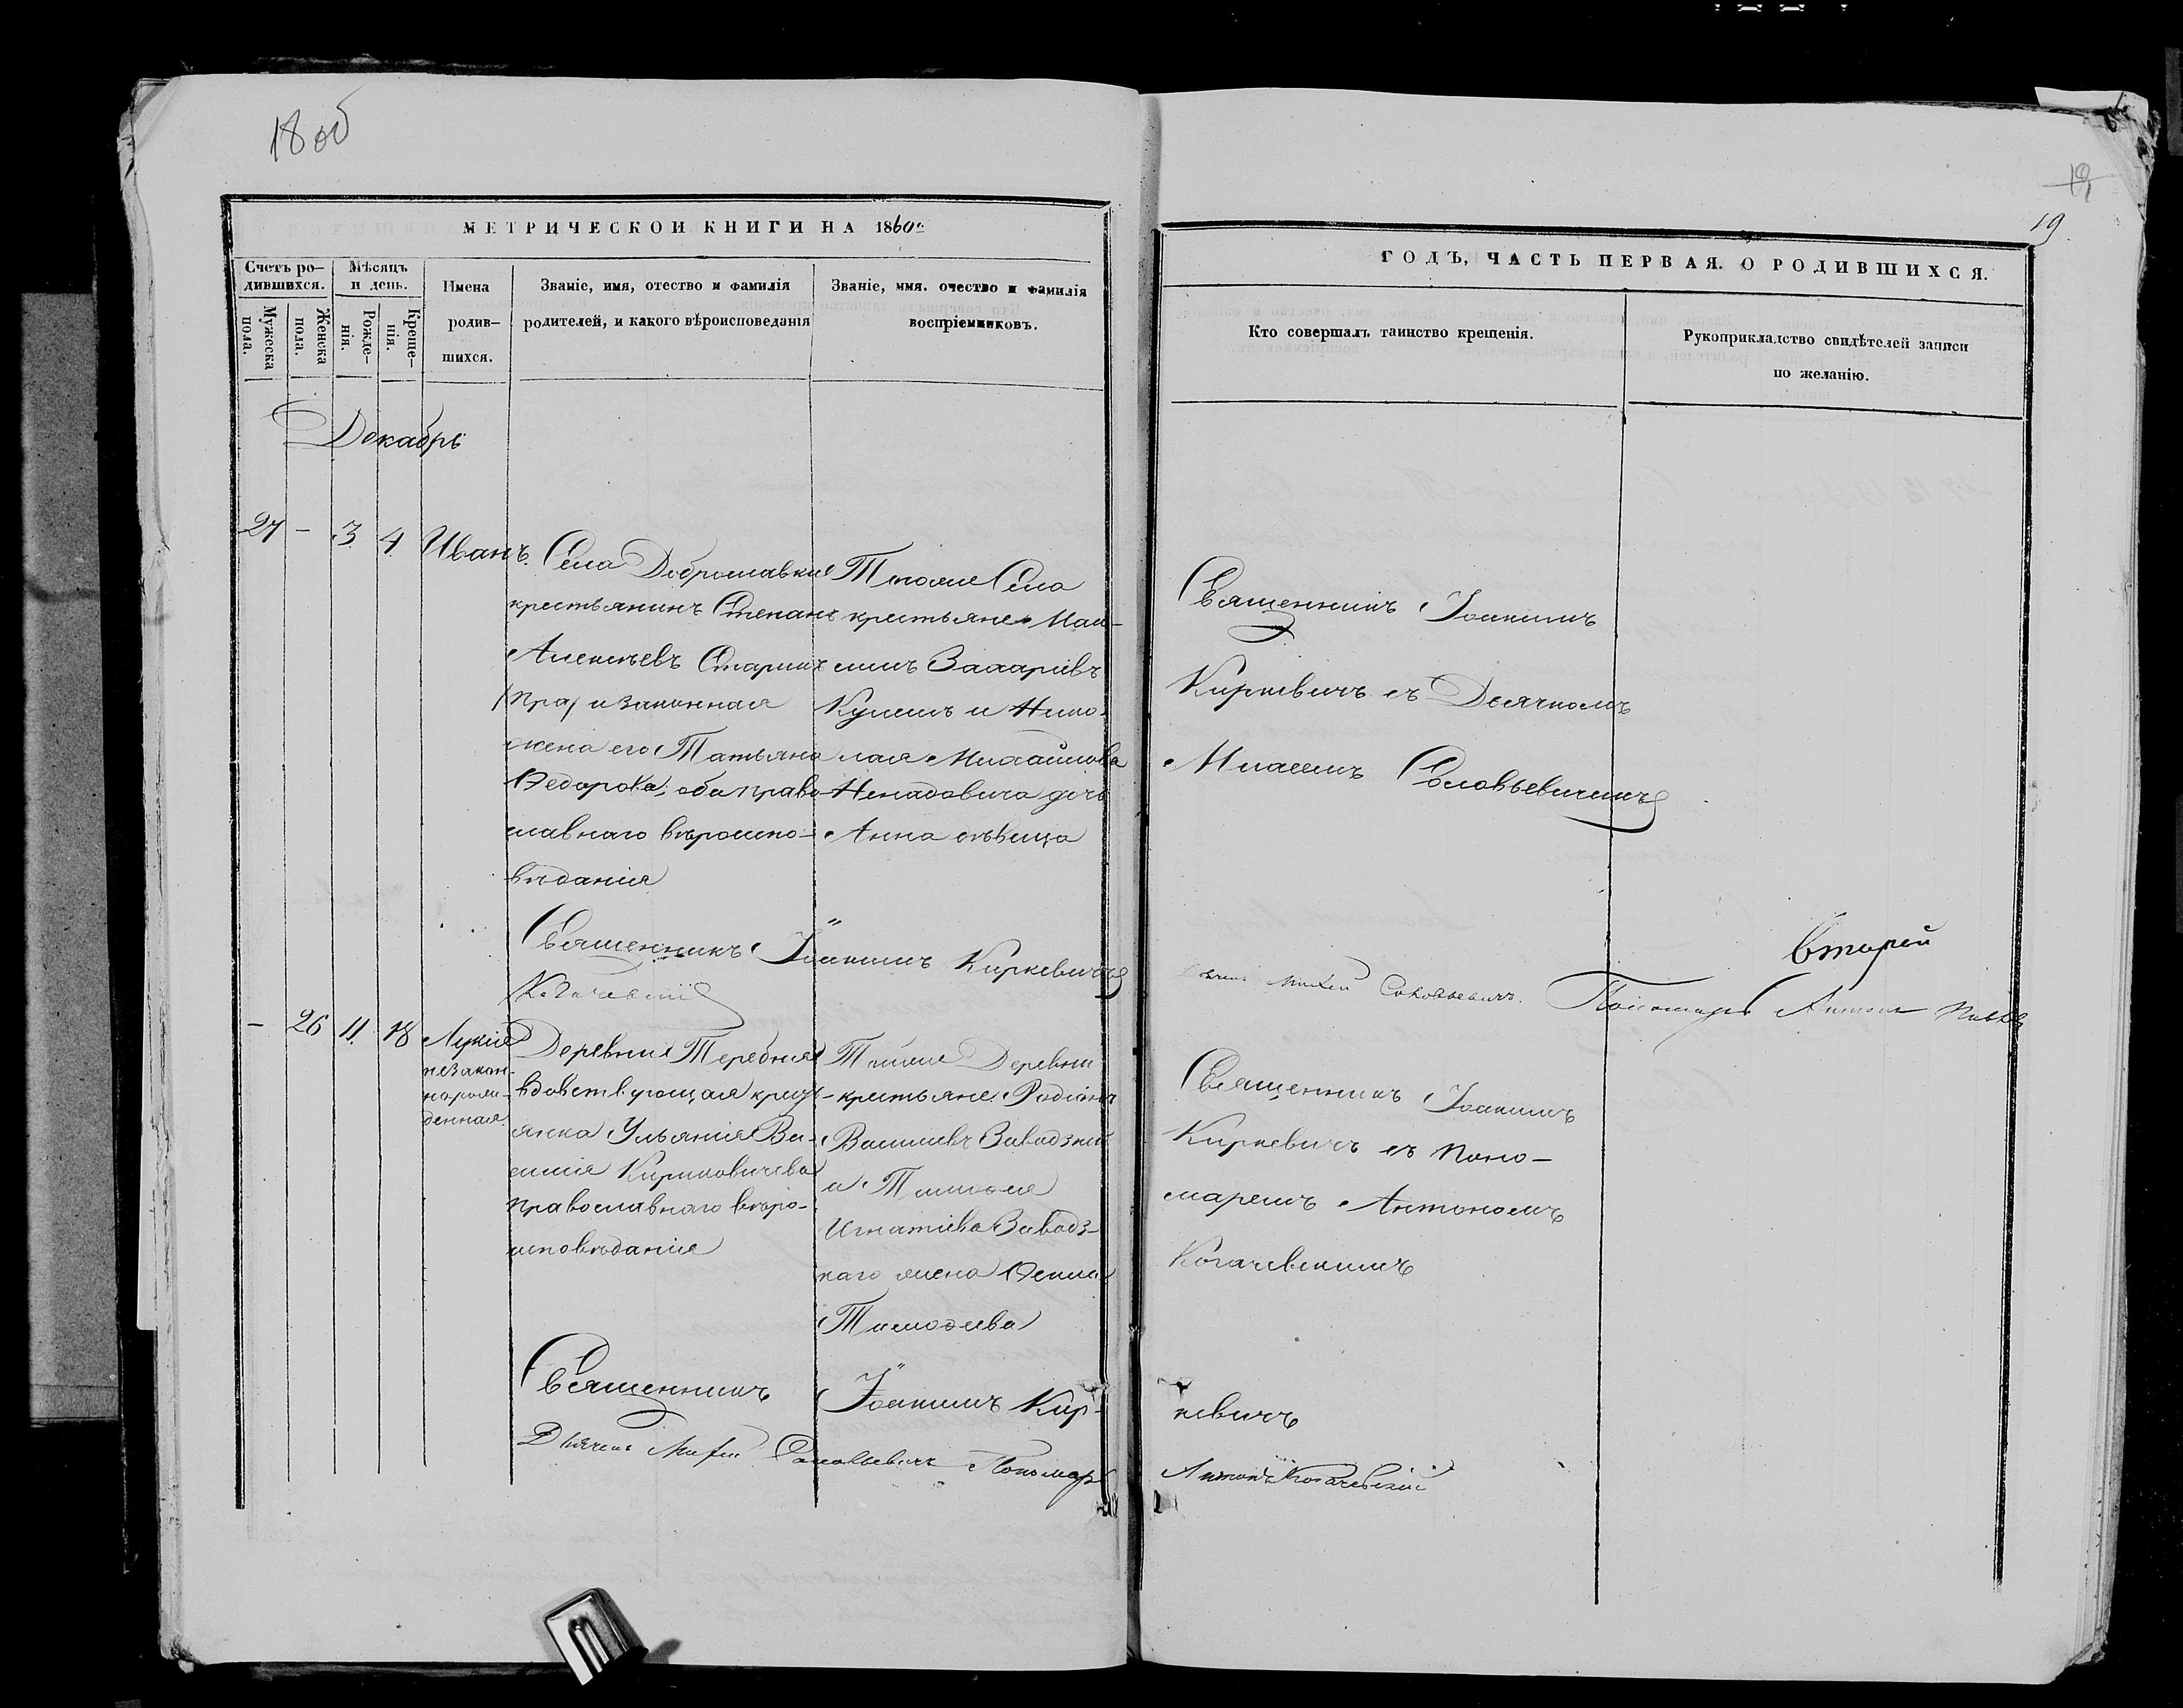 18 об
19
19
МЕТРИЧЕСКОЙ КНИГИ НА 1860й
Счетъ ро-
дившихся.
Мужеска
пола.
Женска
пола.
Мѣсяцъ
и день.
Рожде-
нія.
Креще-
нія.
Имена
родив-
шихся.
Званіе, имя, отество и фамилія
родителей, и какого вѣроисповеданія
Званіе, имя. очество и фамилія
воспріемниковъ.
ГОДЪ, ЧАСТЬ ПЕРВАЯ. О РОДИВШИХСЯ.
Кто совершалъ таинство крещенія.
Рукоприкладство свидѣтелей записи
по желанію.
Декабрь
27 - 3 4 Иванъ.
Села Доброславки
крестьянинъ Степанъ
Алексѣевъ
и законная
жена его Татьяна
Федорова, оба право-
славнаго вѣроиспо-
вѣданія
Тогоже Села
крестьяне Мак-
симъ Захаріевъ
Кулешъ и Нико-
лая Михайлова
Ненадовича дочь
Анна дѣвица
Священникъ Іоакимъ
Киркевичъ съ Дьячкомъ
Михеемъ Соловьевичемъ
Священникъ Іоакимъ Киркевичъ
Михей Соловьевичъ.
второй
Пономарь Антонъ
Когачевскій
- 26 11 18 Лукія
незакон-
норож-
денная
Деревни Теребня
вдовствующая крест-
янка Ульянія Ва-
силія Кириковичева
православнаго вѣро-
исповѣданія
Тойже Деревни
крестьяне Родіонъ
Василіевъ
и Тимофея
Игнатіева
каго жена Фекла
Тимофеева
Священникъ Іоакимъ
Киркевичъ съ Поно-
маремъ Антономъ
Когачевскимъ
Священникъ Іоакимъ Кир-
кевичъ
Дьячекъ Михей Соловьевичъ Пономарь
Антонъ Когачевскій